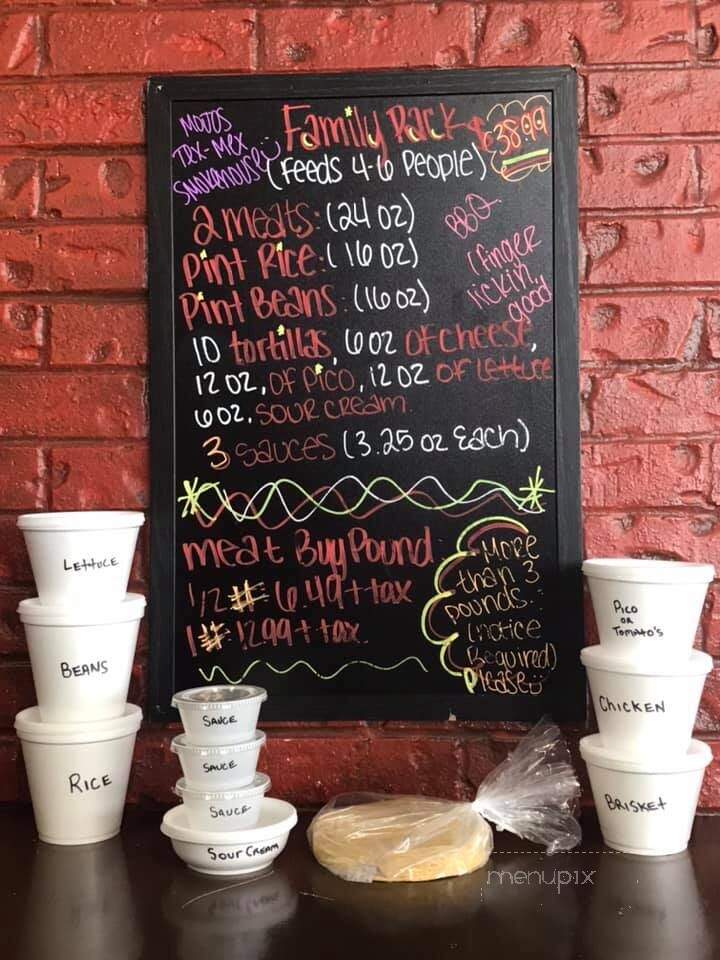 MOJO'S
TEX-MEX
SMOKEHOUSE
Family Pack $38.99
(Feeds 4-6 People)
2 meats: (24 oz)
Pint Rice: (16 oz)
Pint Beans: (16 oz)
BBQ
(finger
lickin
good
10 tortillas, 6 oz of cheese,
12 oz, of Pico, 12 oz of Lettuce
6 oz. SOUR CREAM.
3 Sauces (3.25 oz Each)
meat Buy Pound
1/2 # 6.49 + tax
1 # 12.99 + tax.
More
than 3
pounds.
(notice
Required)
Please
LETTUCE
BEANS
RICE
SAUCE
SAUCE
SAUCE
SOUR CREAM
PICO
OR
TOMATO'S
CHICKEN
BRISKET
menupix